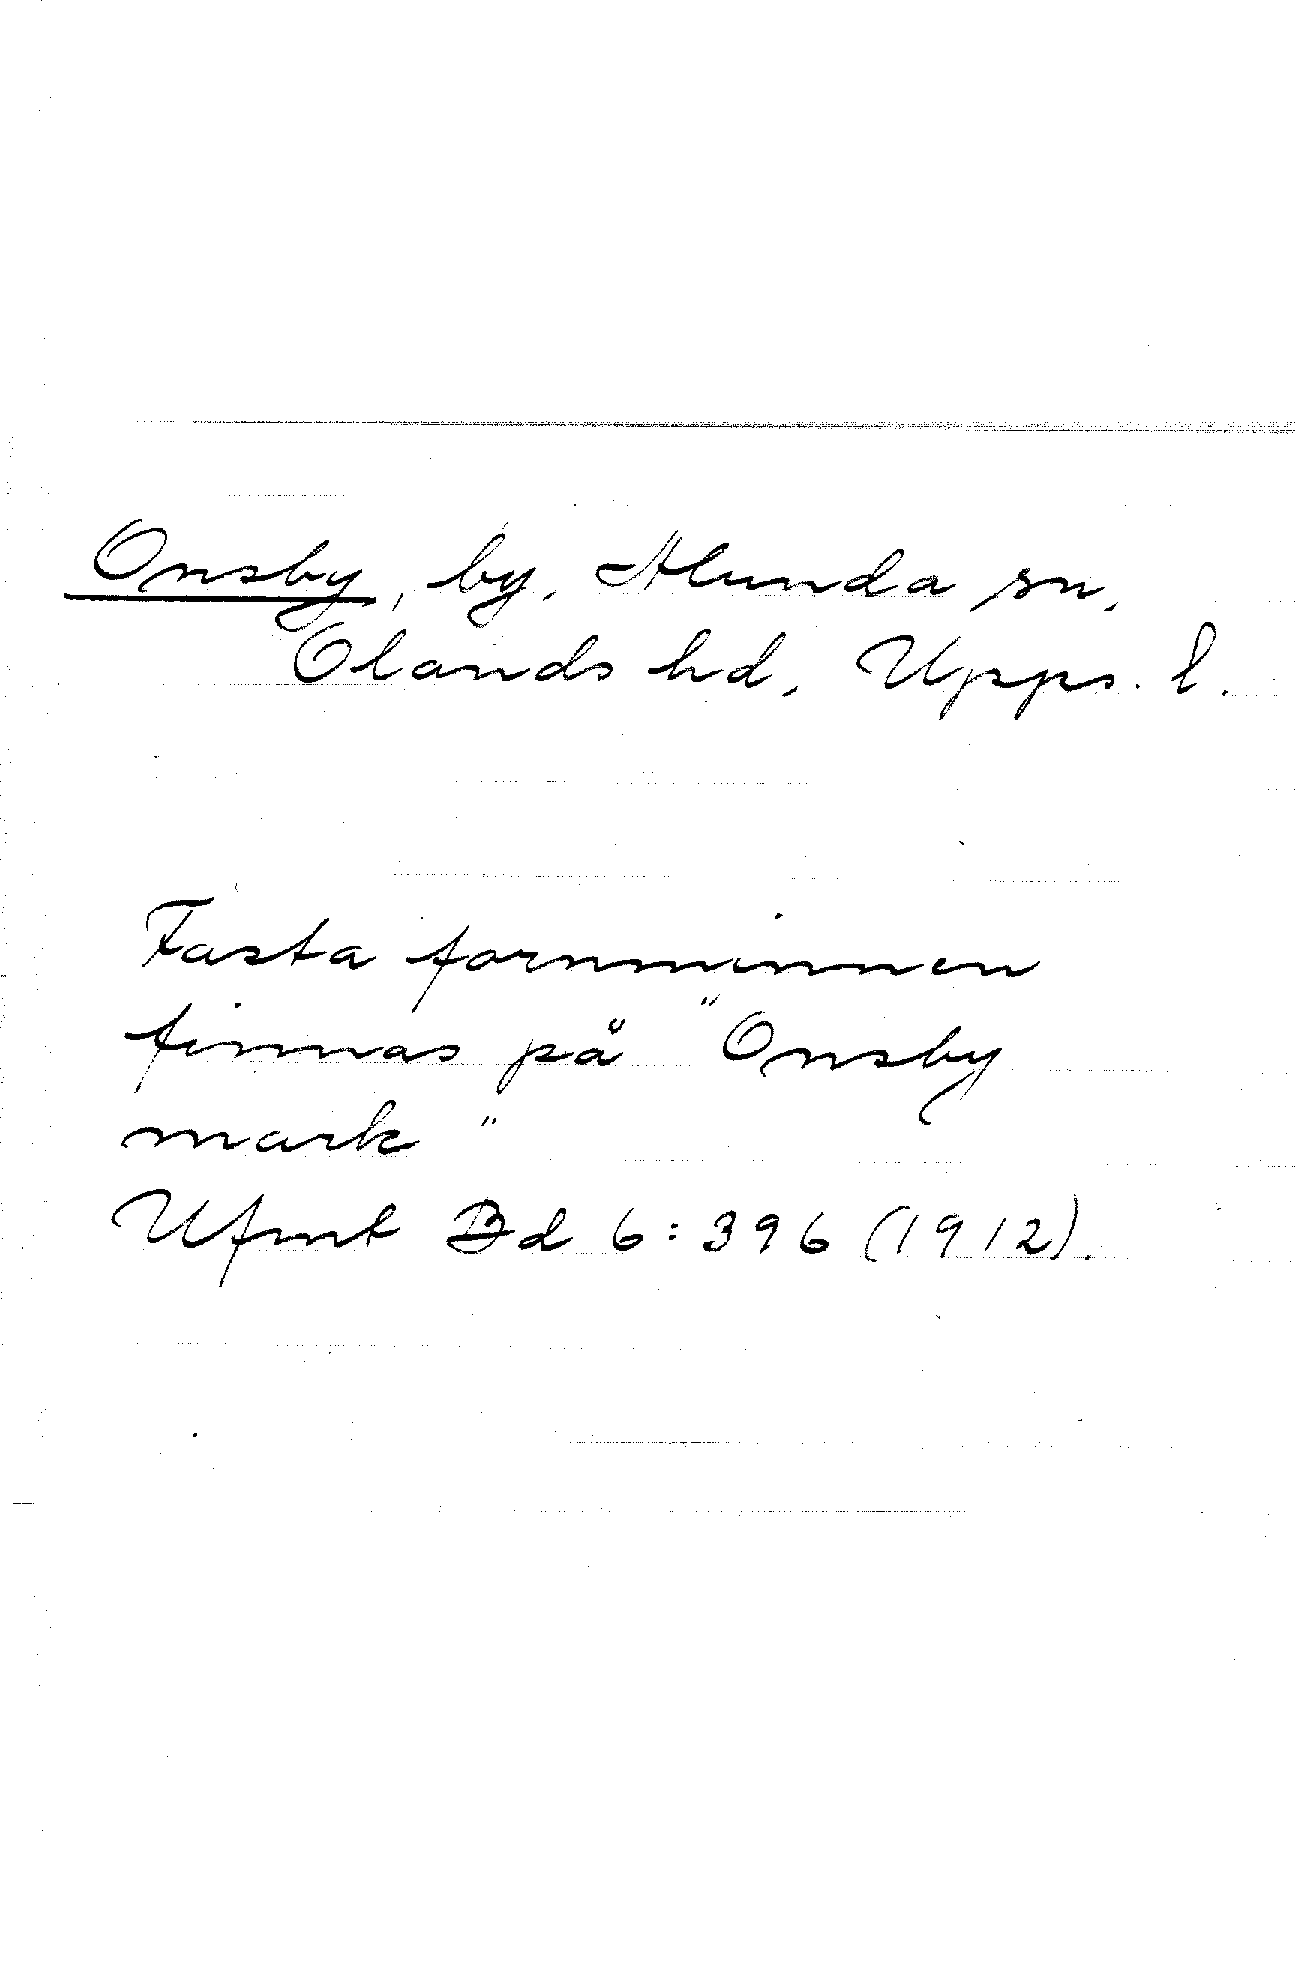 Onsby, by, Alunda sn,
Olands hd, Upps. l.
Fasta fornminnen
finnas på "Onsby
mark"
Ufmt Bd 6:396 (1912).